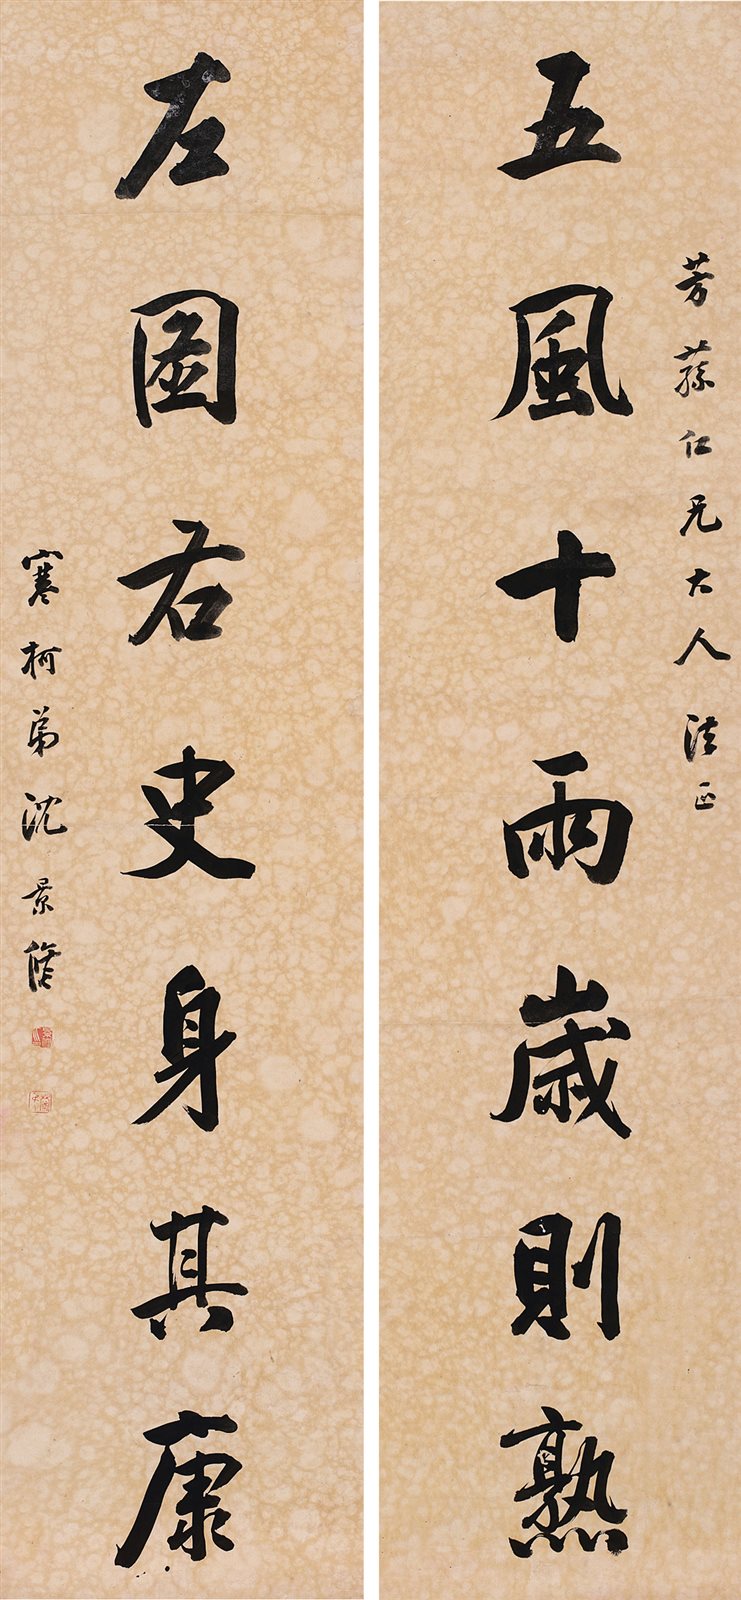 芳蓀仁兄大人法正
五風十雨歲則熟
左圖右史身其康
寒柯弟沈景脩